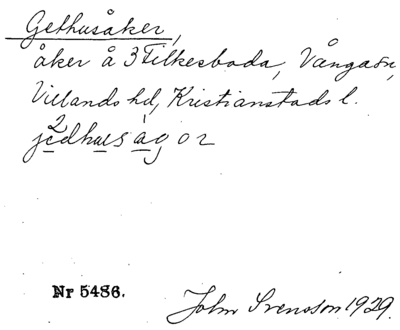 Gethusåker,
åker å 3 Filkesboda, Vånga sn,
Villands hd, Kristianstads l.
Nr 5486.
John Svensson 1929.